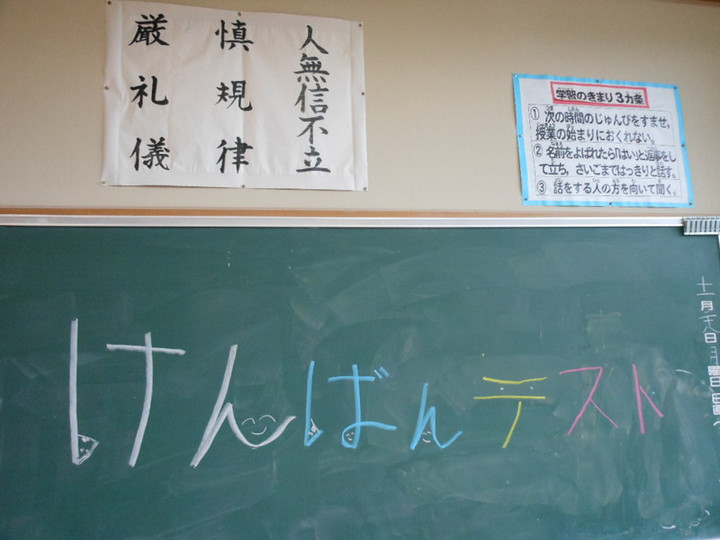 人無信不立
慎規律
厳礼儀
学習のきまり3カ条
① 次の時間のじゅんびをすませ、
授業の始まりにおくれない。
② 名前をよばれたら「はい」と返事をし
て立ち、さいごまではっきりと話す。
③ 話をする人の方を向いて聞く。
けんばんテスト